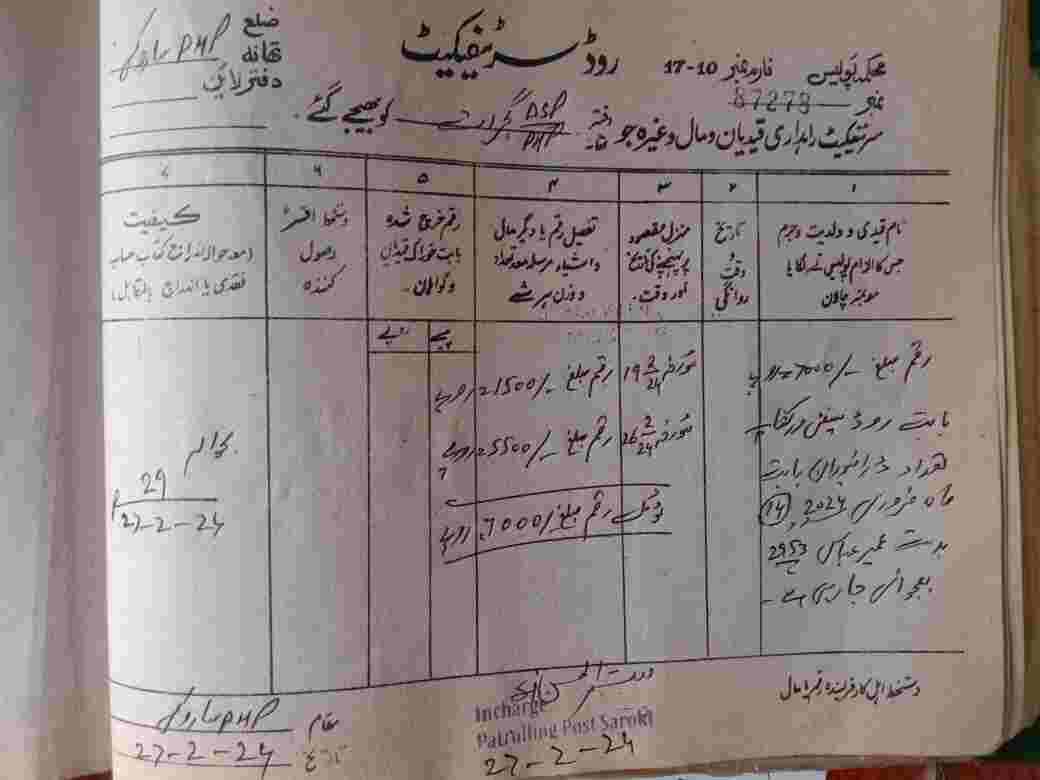 ضلع
تھانہ PHP ساروکی
دفتر لائن
روڈ سرٹیفکیٹ
محکمہ پولیس فارم نمبر 10-17
نمبر 87273
سرٹیفکیٹ راہداری قیدیان و مال وغیرہ جو دفتر DSP PHP گجرات کو بھیجے گئے۔
۱
نام قیدی و ولدیت و جرم
جس کا الزام پولیس نے لگایا
موہنبر چالان
۲
تاریخ
و
وقت
روانگی
۳
منزل مقصود
پر پہنچنے کی تاریخ
اور وقت۔
۴
تفصیل رقم یا دیگر مال
و اشیاء مرسلہ معہ تعداد
و وزن ہر شے
۵
رقم خرچ شدہ
بابت خوراک قیدیان
و گواہان۔
پیسے روپے
۶
دستخط افسر
وصول
کنندہ
۷
کیفیت
(معہ حوالہ اندراج کتاب حساب
نقدی یا اندراج بالمقابل)
رقم مبلغ -/7000 روپے
بابت روڈ سیفٹی
تعداد ڈرائیوران بابت
ماہ فروری 2024 (14)
بدست عمیر عباس 2953
بھجوائی جا رہی ہے۔
مورخہ 19-2-24 رقم مبلغ -/1500 روپے
مورخہ 26-2-24 رقم مبلغ -/5500 روپے
ٹوٹل رقم مبلغ -/7000 روپے
بحوالہ
29
27-2-24
دستخط اہل کار فرستندہ رقم یا مال
Incharge
Patrolling Post Saroki
27-2-24
مقام PHP ساروکی
تاریخ 27-2-24